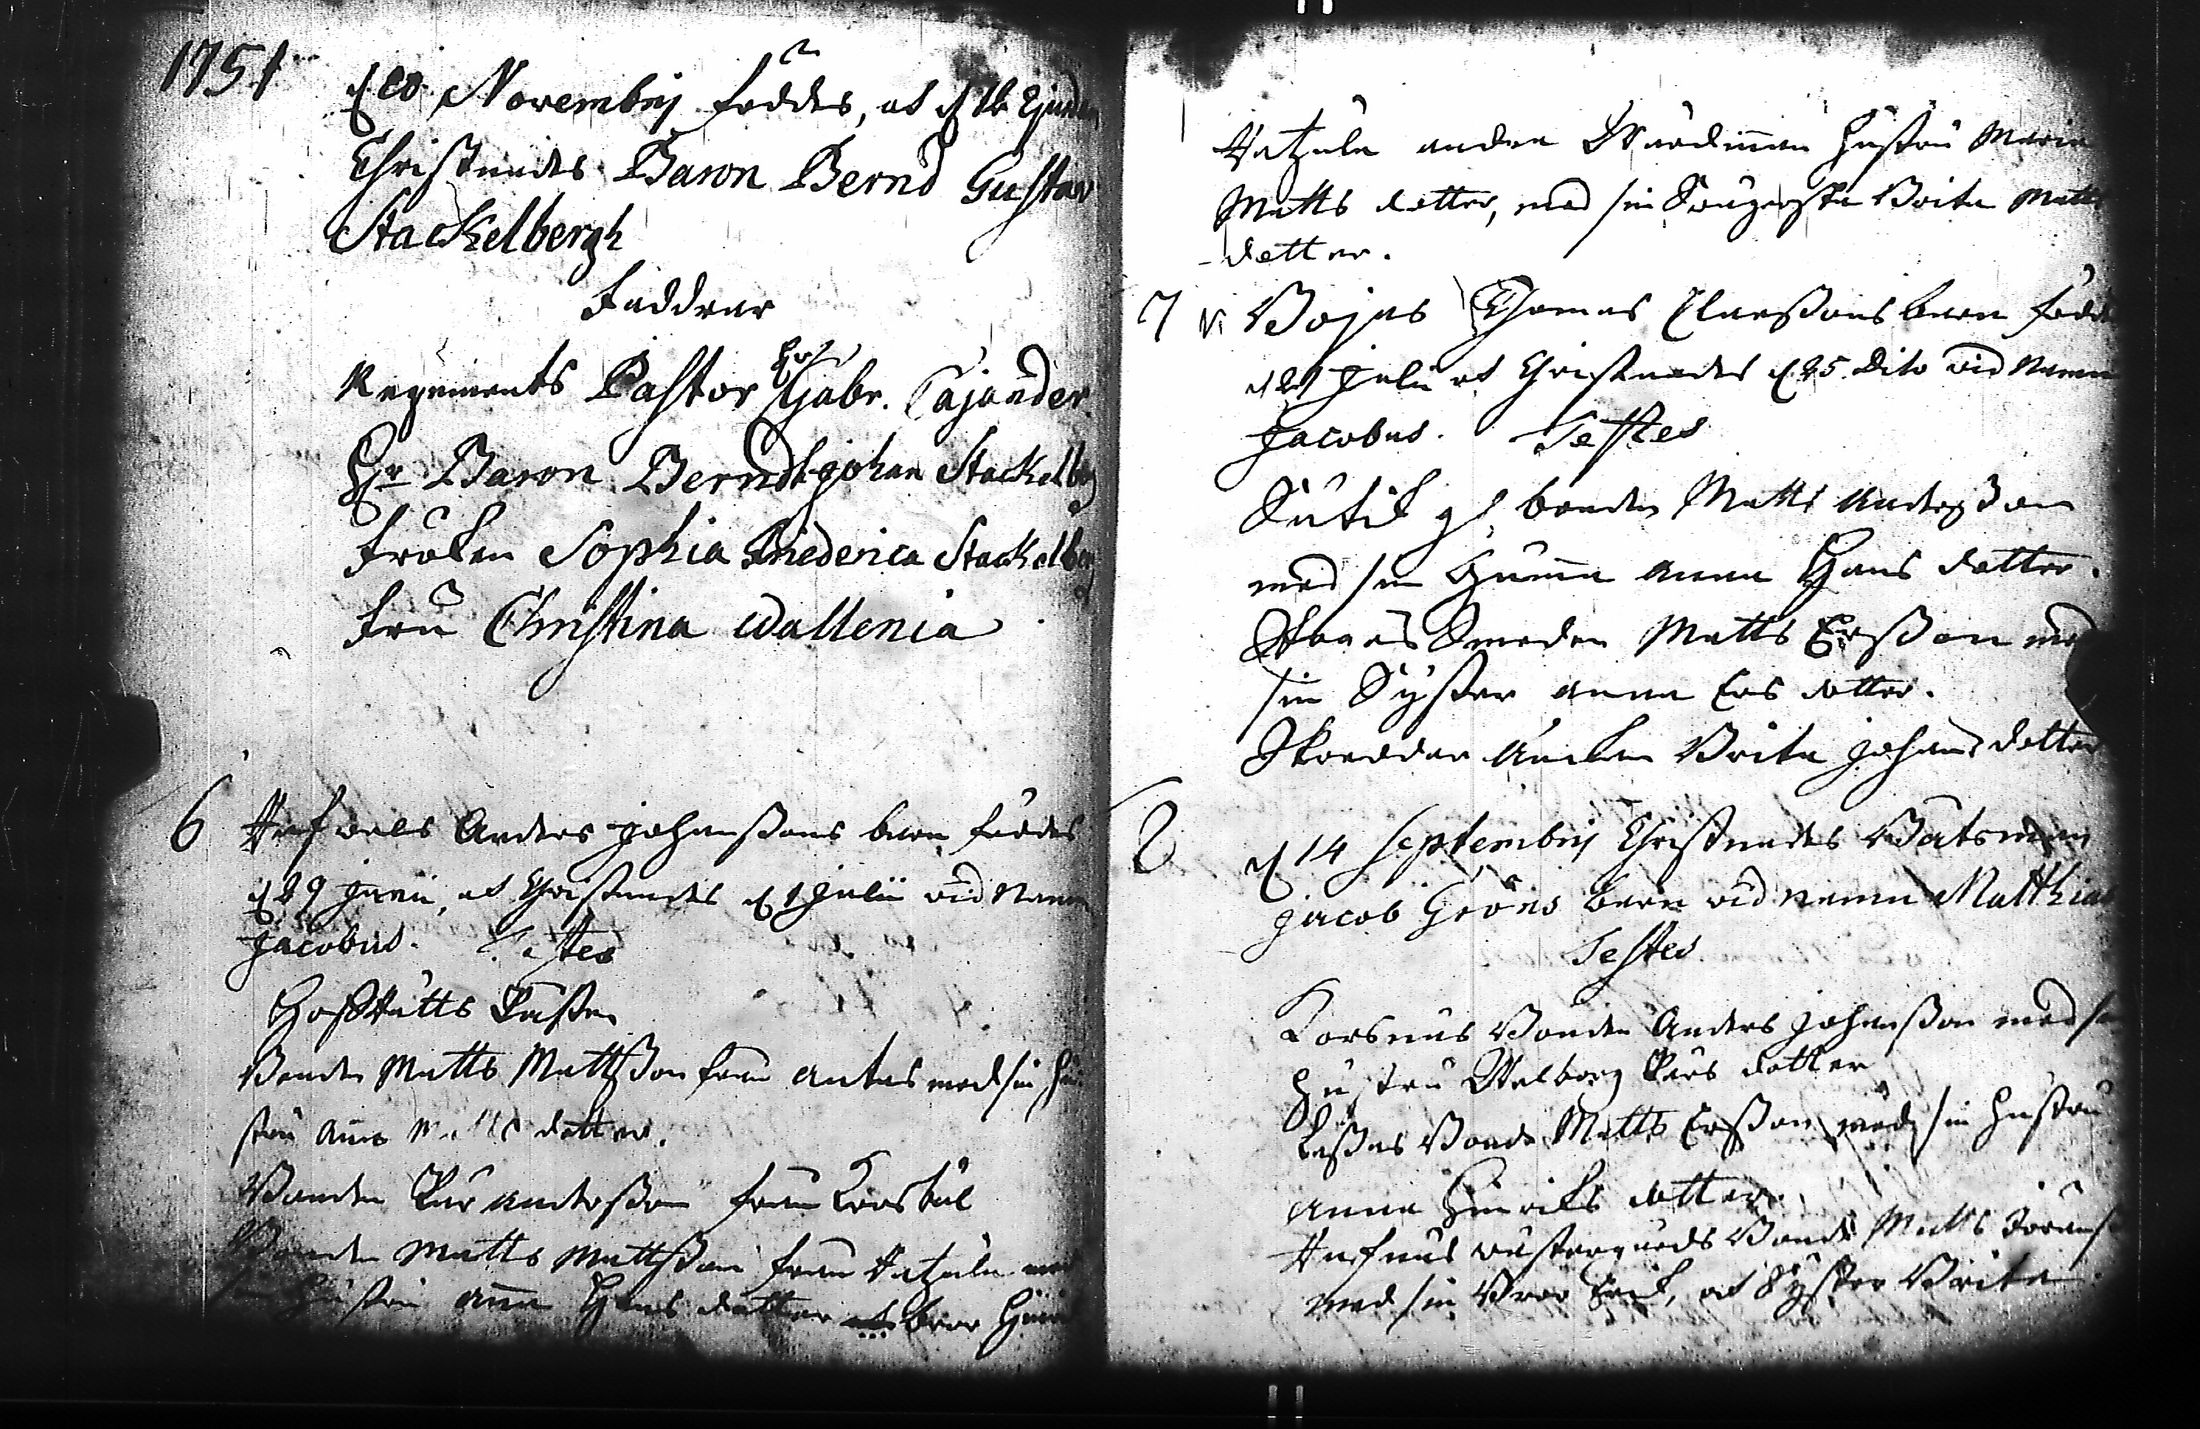 1751
d 20 Novembrij föddes, et d 16 Ejusdem
Christnades Baron Bernd Gustav
Stackelbergh
Faddrar
Regements Pastor Hr Gabr. Cajander.
Hr Baron Berndt johan Stackelberg
Fröken Sophia Friederica Stackelberg
Fru Christina Wallenia
6 Anders Johanßons barn föddes
d 29 Junii, et Christnades d 1 Julii vid Namn
Jacobus. Testes
Bonden Matts Mattßon från Antas med sin Hu-
stru Anna Matts dotter.
Bonden Pär Anderßon från Korsbäl
Bonden Matts Mattßon från med
sin Hustru Anna Hans dotter bror
andra Hustru Maria
Matts dotter, med sin Brita Matts
dotter.
7 Bojas Thomas Clarßons barn född
d 21 Julii et Christnades d 25. Dito vid Namn
Jacobus. Testes
bonden Matts Anderßon
med sin Gumma Anna Hans dotter.
Smeden Matts Erßon med
sin Syster Anna Ers dotter.
Skräddar Änckan Brita Johans dotter
8 d 14 Septembrij Christnades Båtsman
Jacob Gröns barn vid namn Matthias
Testes
Korsnäs Bonden Anders Johanßon med sin
Hustru Walborg Pärs dotter
Bonde Matts Erßon med sin Hustru
Anna Hinriks dotter.
Bonde Matts
med sin Bror Erik, et Syster Brita